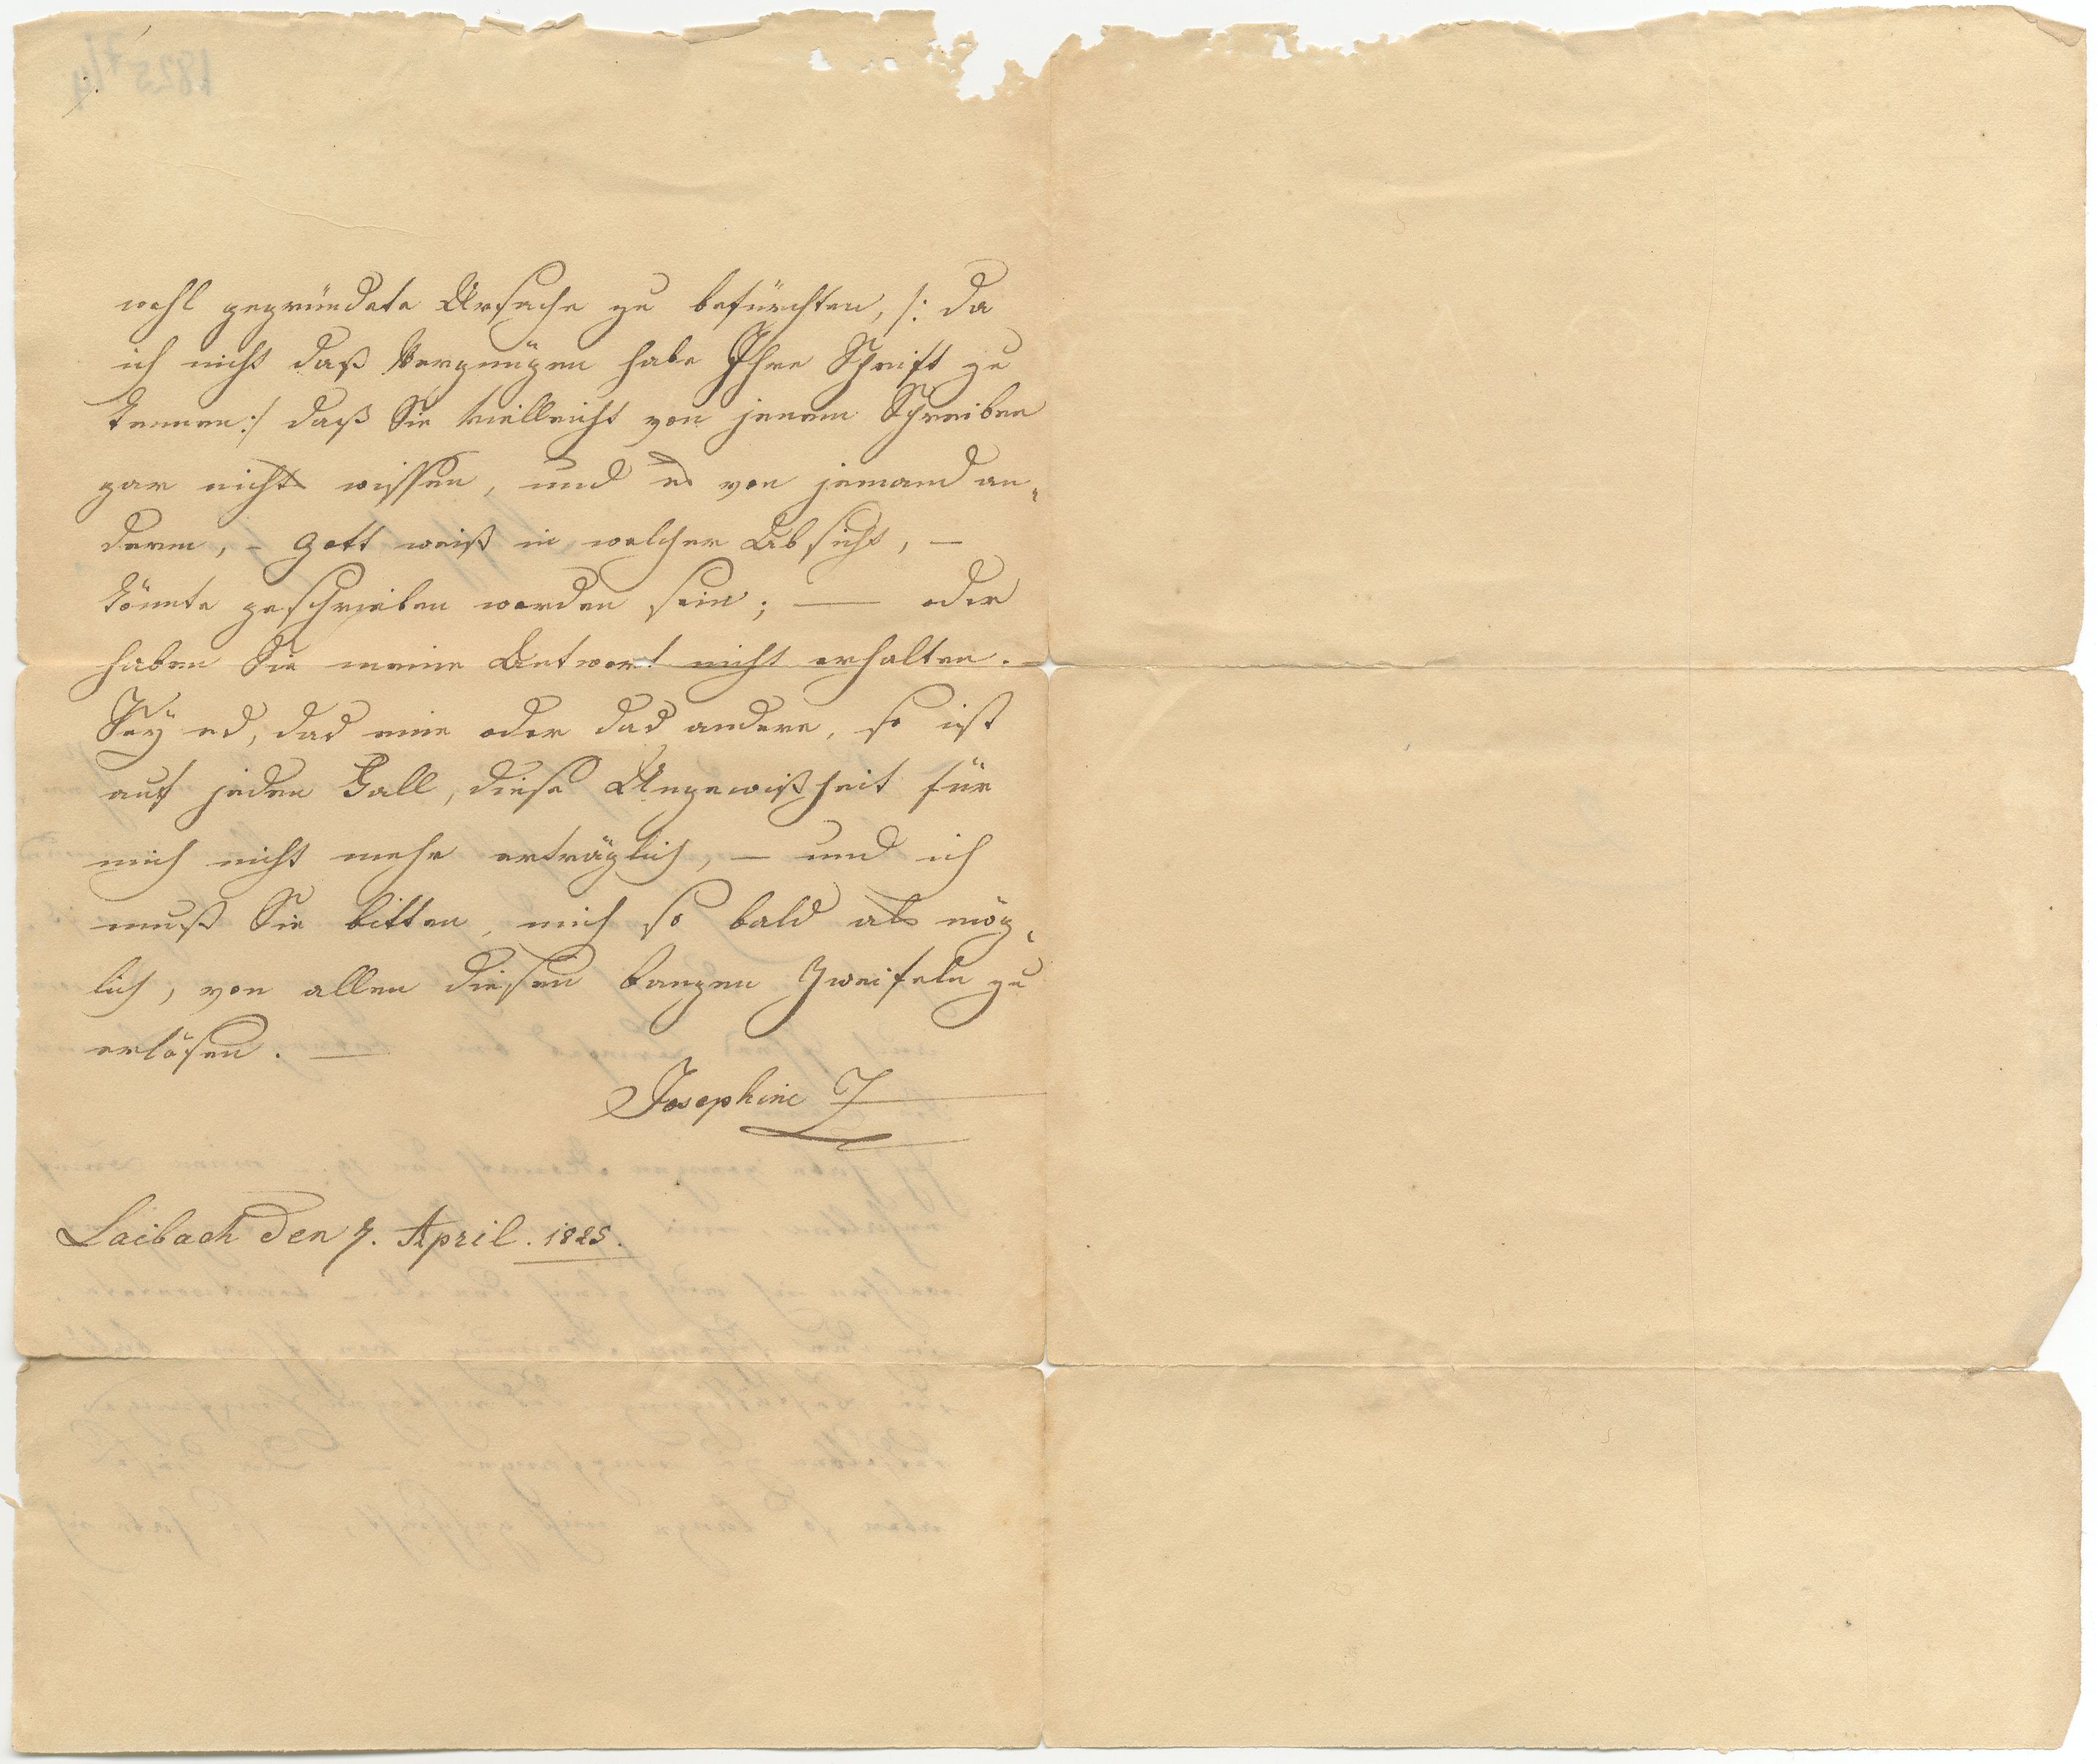 wohl gegründete Ursache zu befürchten, /: da
ich nicht daß Vergnügen habe Ihre Schrift zu
kennen :/ daß Sie vielleicht von jenem Schreiben
gar nichts wissen, und es von jemand an„
derm, – Gott weiß in welcher Absicht, —
könnte geschrieben worden sein; —— oder
haben Sie meine Antwort nicht erhalten. –
Sey es, das eine oder das andere, so ist
auf jeden Fall, diese Ungewißheit für
mich nicht mehr erträglich, — und ich
muß Sie bitten, mich so bald als mög„
lich, von allen diesen bangen Zweifeln zu
erlösen. ——
Josephine Z
Laibach den 7. April. 1825.